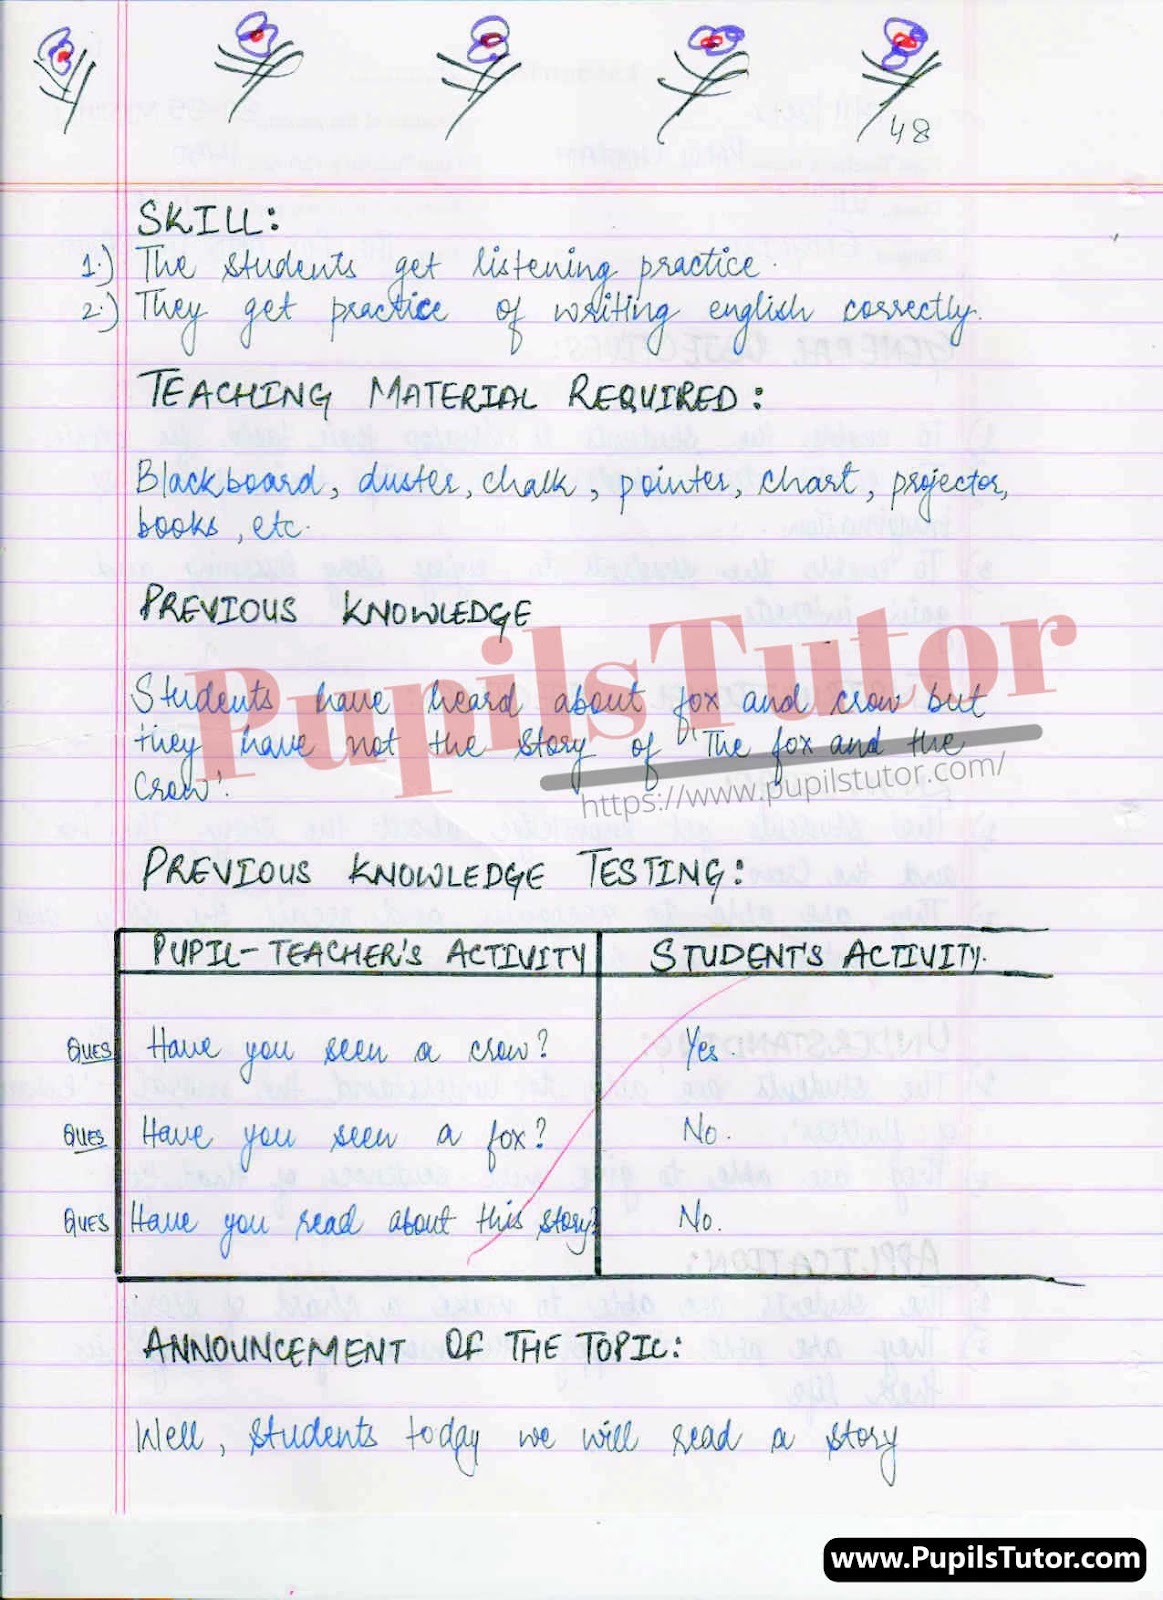 48
SKILL:
1.) The students get listening practice.
2.) They get practice of writing english correctly.
TEACHING MATERIAL REQUIRED:
Blackboard, duster, chalk, pointer, chart, projector,
books, etc.
PREVIOUS KNOWLEDGE
PupilsTutor
Students have heard about fox and crow but
they have not the story of "The fox and the
Crow'.
https://www.pupilstutor.com/
PREVIOUS KNOWLEDGE TESTING:
PUPIL-TEACHER'S ACTIVITY STUDENT'S ACTIVITY.
QUES Have you seen a crow? Yes.
QUES Have you seen a fox? No.
QUES Have you read about this story? No.
ANNOUNCEMENT OF THE TOPIC:
Well, students today we will read a story
www.PupilsTutor.com